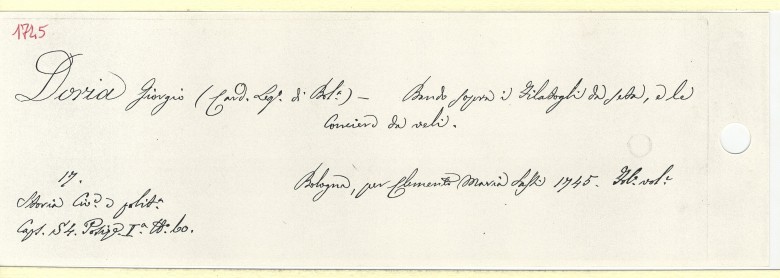 1745
Doria Giorgio (Card. Leg.º di Bol.ª) — Bando sopra i Filatogli da seta, e le
Conciere da veli.
Bologna, per Clemente Maria Sassi 1745. Fol.º vol.e
17.
Storia Civ.e e polit.ª
Caps. S4. N.º 60.